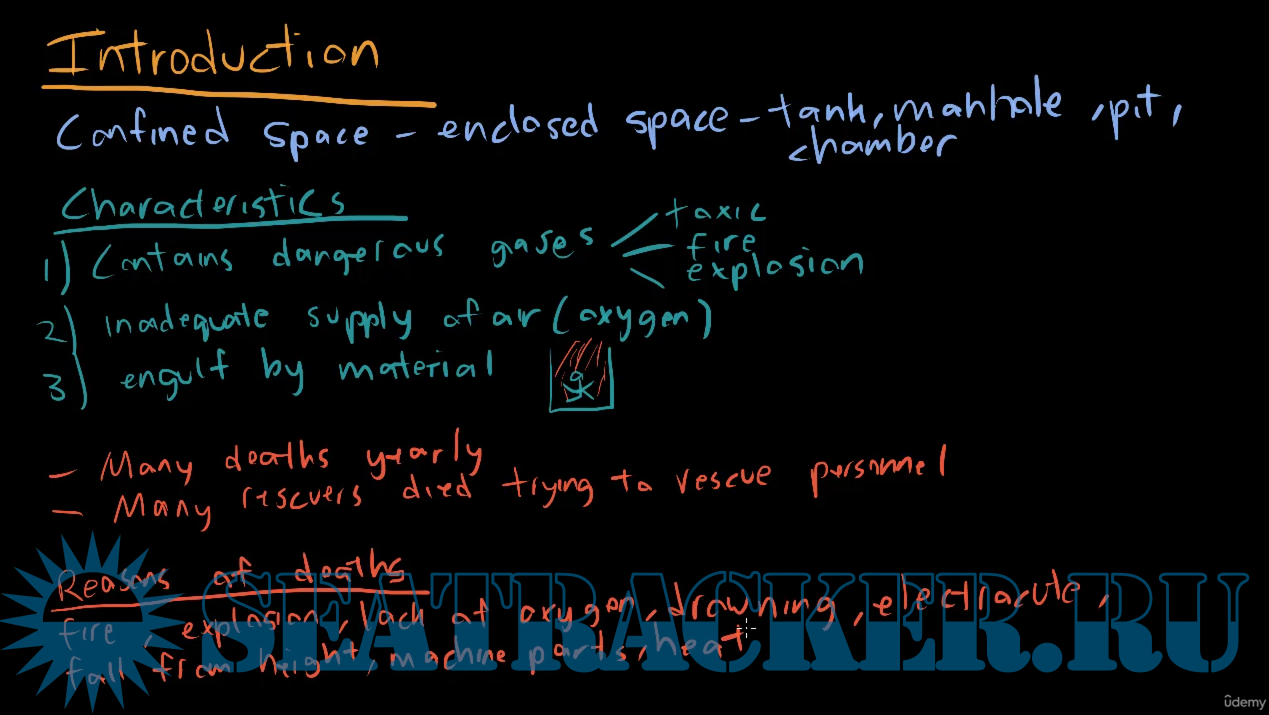 Introduction
Confined space - enclosed space - tank, manhole, pit,
chamber
Characteristics
1) Contains dangerous gases
toxic
fire
explosion
2) inadequate supply of air (oxygen)
3) engulf by material
- Many deaths yearly
- Many rescuers died trying to rescue personnel
Reasons of deaths
fire, explosion, lack of oxygen, drowning, electracute,
fall from height, machine parts, heat
SEATRACKER.RU
ûdemy